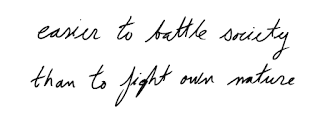 easier to battle society
than to fight own nature